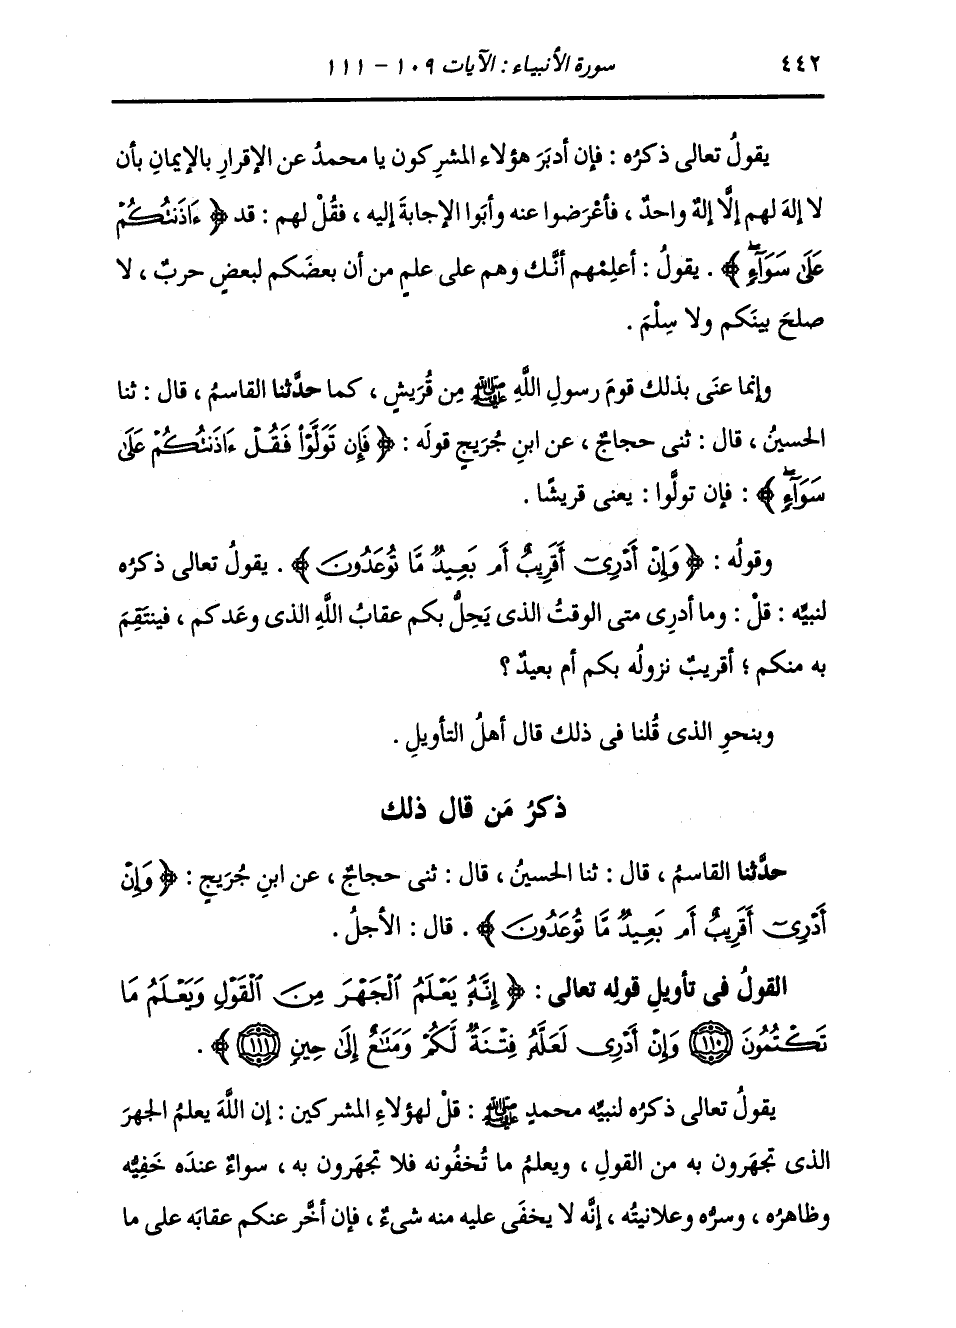 ٤٤٢ سورة الأنبياء : الآيات ١٠٩ - ١١١
يقولُ تعالى ذكرُه : فإن أدبَرَ هؤلاء المشرِكون يا محمدُ عن الإقرارِ بالإيمانِ بأن
لا إلهَ لهم إلَّا إلهٌ واحدٌ ، فأعْرَضوا عنه وأبَوا الإجابةَ إليه ، فقُلْ لهم : قد ﴿ ءَاذَنتُكُمْ
عَلَىٰ سَوَآءٍ ﴾ . يقولُ : أعلِمْهم أنَّك وهم على علمٍ من أن بعضَكم لبعضٍ حربٌ ، لا
صلحَ بينَكم ولا سِلْمَ .
وإنما عنَى بذلك قومَ رسولِ اللَّهِ ﷺ مِن قُرَيشٍ ، كما حدَّثنا القاسمُ ، قال : ثنا
الحسينُ ، قال : ثنى حجاجٌ ، عن ابنِ جُرَيجٍ قولَه : ﴿ فَإِن تَوَلَّوْا۟ فَقُلْ ءَاذَنتُكُمْ عَلَىٰ
سَوَآءٍ ﴾ : فإن تولَّوا : يعنى قريشًا .
وقولُه : ﴿ وَإِنْ أَدْرِىٓ أَقَرِيبٌ أَم بَعِيدٌ مَّا تُوعَدُونَ ﴾ . يقولُ تعالى ذكرُه
لنبيِّه : قلْ : وما أدرِى متى الوقتُ الذى يَحِلُّ بكم عقابُ اللَّهِ الذى وعَدكم ، فينتَقِمَ
به منكم ؛ أقريبٌ نزولُه بكم أم بعيدٌ ؟
وبنحوِ الذى قُلنا فى ذلك قال أهلُ التأويلِ .
ذكرُ مَن قال ذلك
حدَّثنا القاسمُ ، قال : ثنا الحسينُ ، قال : ثنى حجاجٌ ، عن ابنِ جُرَيجٍ : ﴿ وَإِنْ
أَدْرِىٓ أَقَرِيبٌ أَم بَعِيدٌ مَّا تُوعَدُونَ ﴾ . قال : الأجلُ .
القولُ فى تأويلِ قوله تعالى : ﴿ إِنَّهُۥ يَعْلَمُ ٱلْجَهْرَ مِنَ ٱلْقَوْلِ وَيَعْلَمُ مَا
تَكْتُمُونَ ١١٠ وَإِنْ أَدْرِى لَعَلَّهُۥ فِتْنَةٌ لَّكُمْ وَمَتَٰعٌ إِلَىٰ حِينٍ ١١١ ﴾ .
يقولُ تعالى ذكرُه لنبيِّه محمدٍ ﷺ : قلْ لهؤلاءِ المشركين : إن اللَّهَ يعلمُ الجهرَ
الذى تجهَرون به من القولِ ، ويعلمُ ما تُخفُونه فلا تجهَرون به ، سواءٌ عندَه خَفِيُّه
وظاهرُه ، وسرُّه وعلانيتُه ، إنَّه لا يخفَى عليه منه شىءٌ ، فإن أخَّر عنكم عقابَه على ما